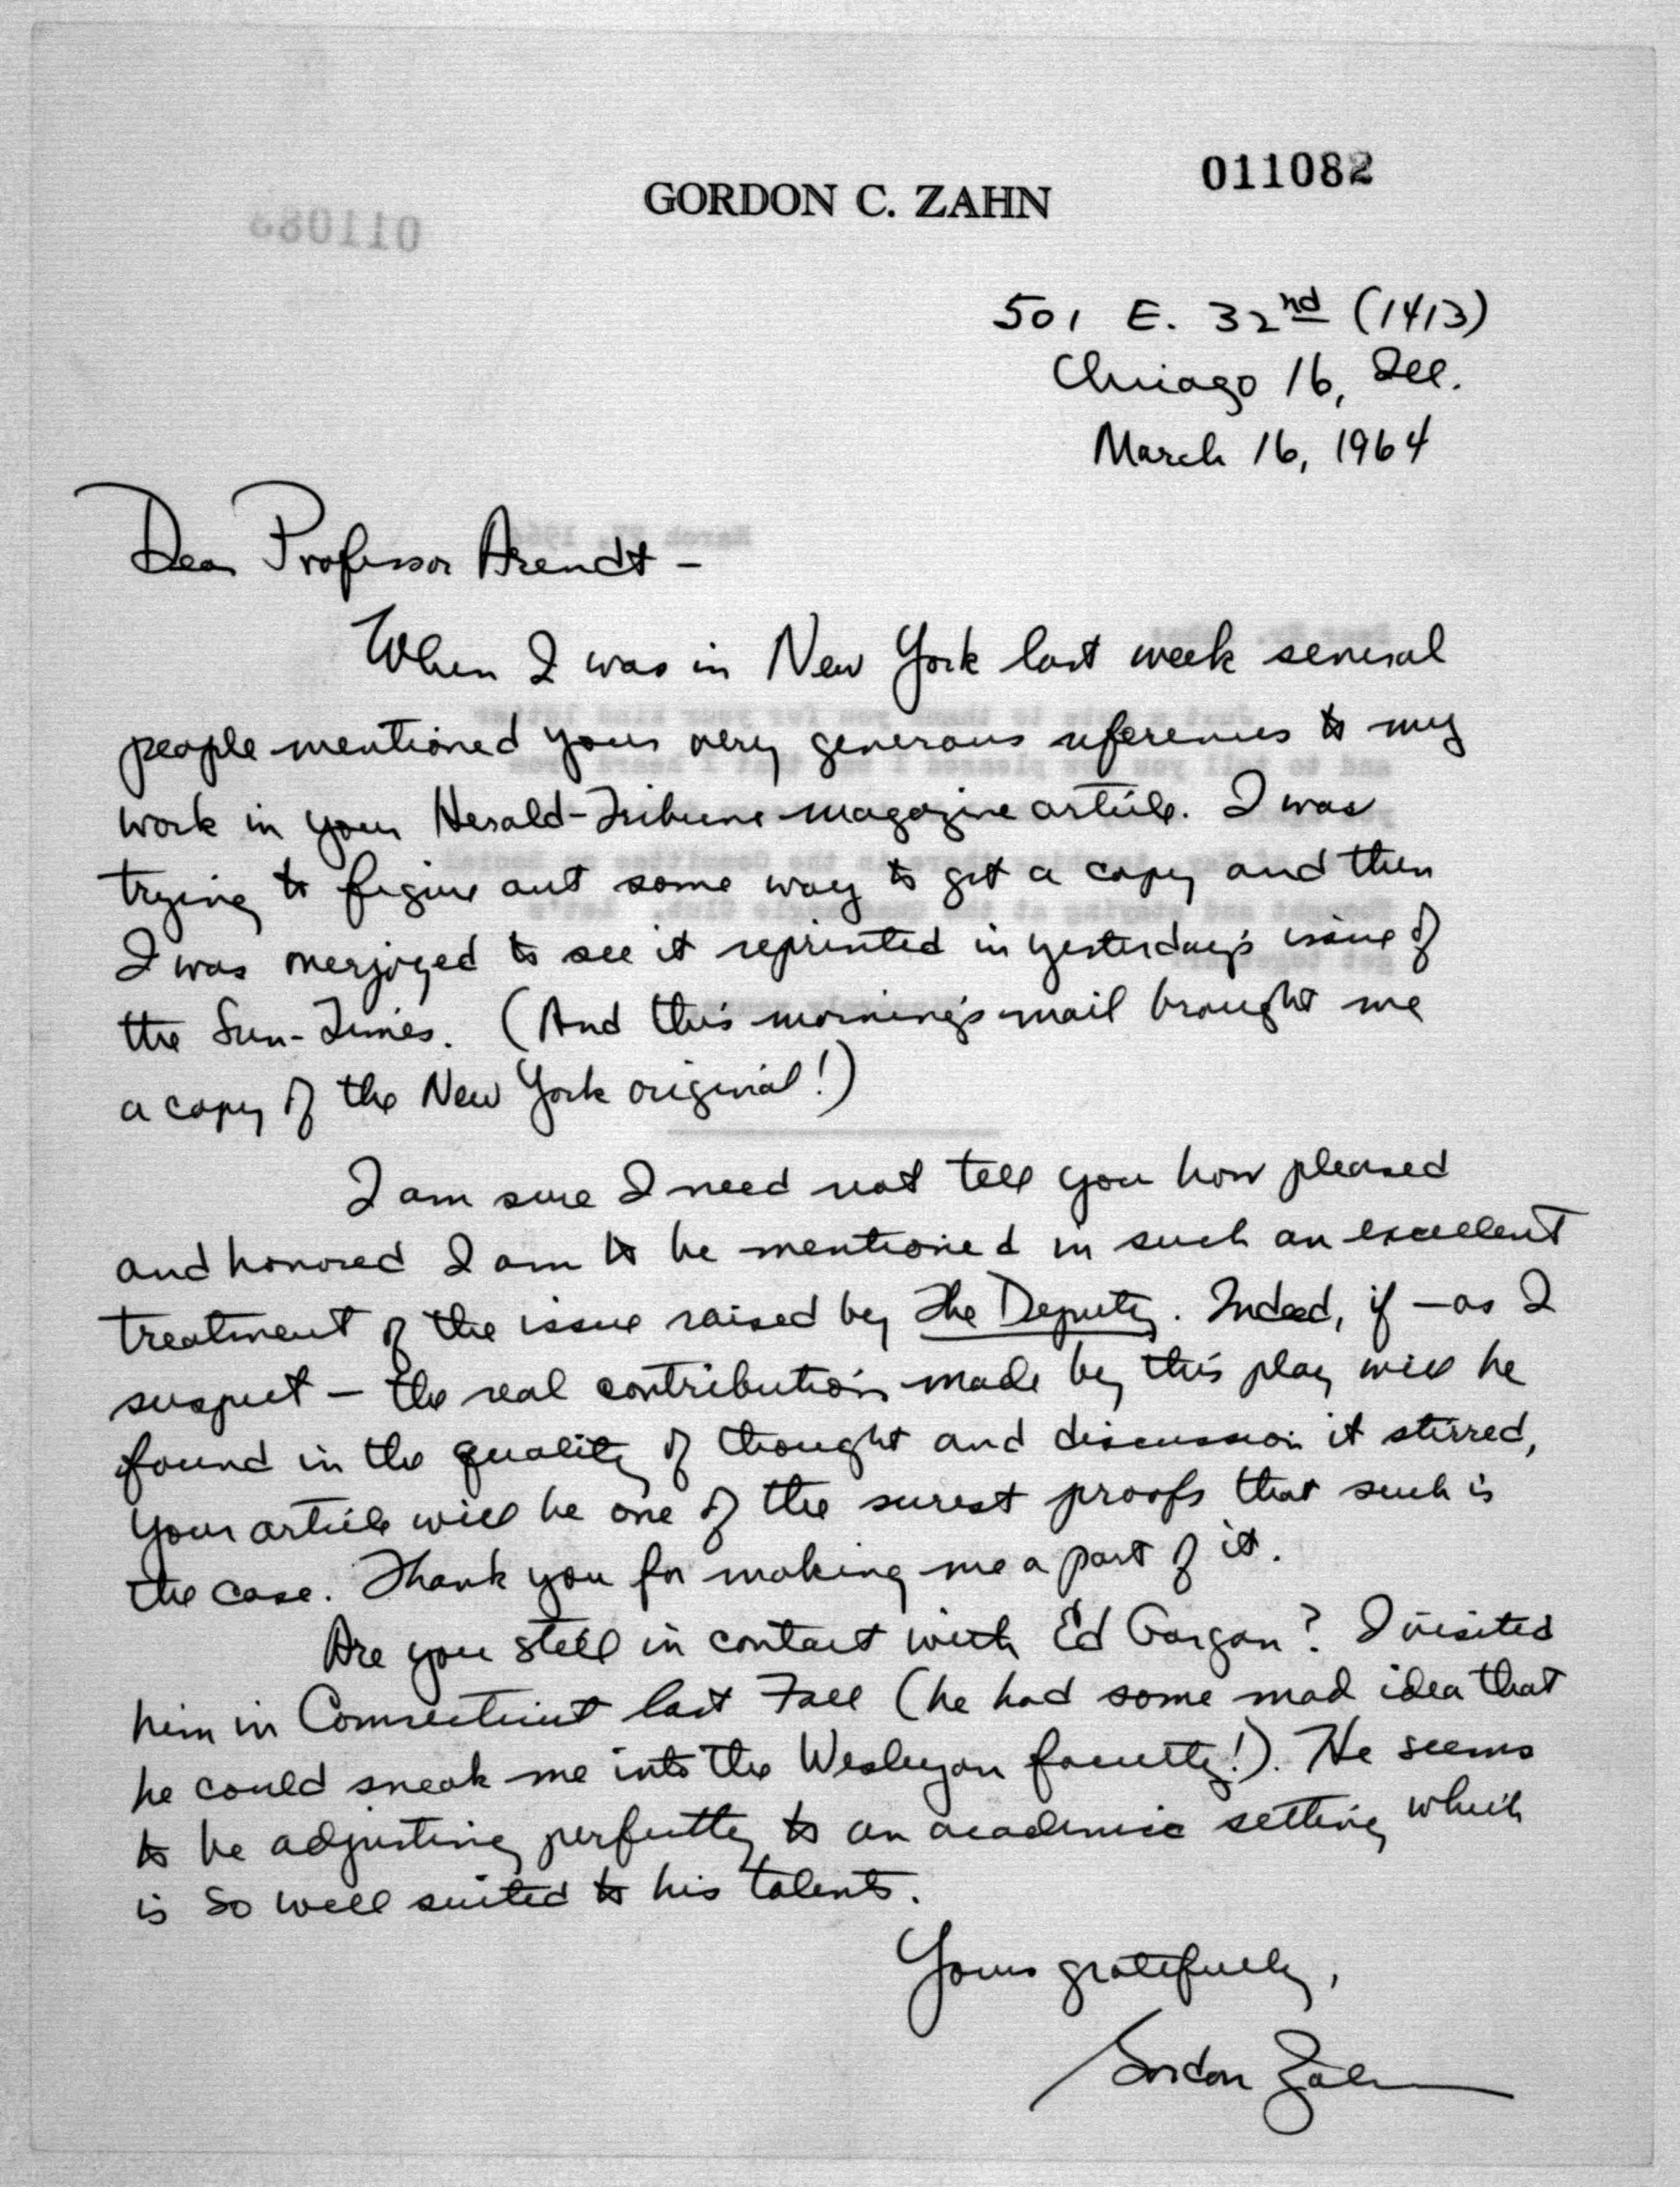 011082
GORDON C. ZAHN
501 E. 32nd (1413)
Chicago 16, Ill.
March 16, 1964
Dear Professor Arendt -
When I was in New York last week several
people mentioned your very generous references to my
work in your Herald-Tribune magazine article. I was
trying to figure out some way to get a copy and then
I was overjoyed to see it reprinted in yesterday's issue of
the Sun-Times. (And this morning's mail brought me
a copy of the New York original!)
I am sure I need not tell you how pleased
and honored I am to be mentioned in such an excellent
treatment of the issue raised by The Deputy. Indeed, if — as I
suspect — the real contribution made by this play will be
found in the quality of thought and discussion it stirred,
your article will be one of the surest proofs that such is
the case. Thank you for making me a part of it.
Are you still in contact with Ed Gargan? I visited
him in Connecticut last Fall (he had some mad idea that
he could sneak me into the Wesleyan faculty!). He seems
to be adjusting perfectly to an academic setting which
is so well suited to his talents.
Yours gratefully,
Gordon Zahn